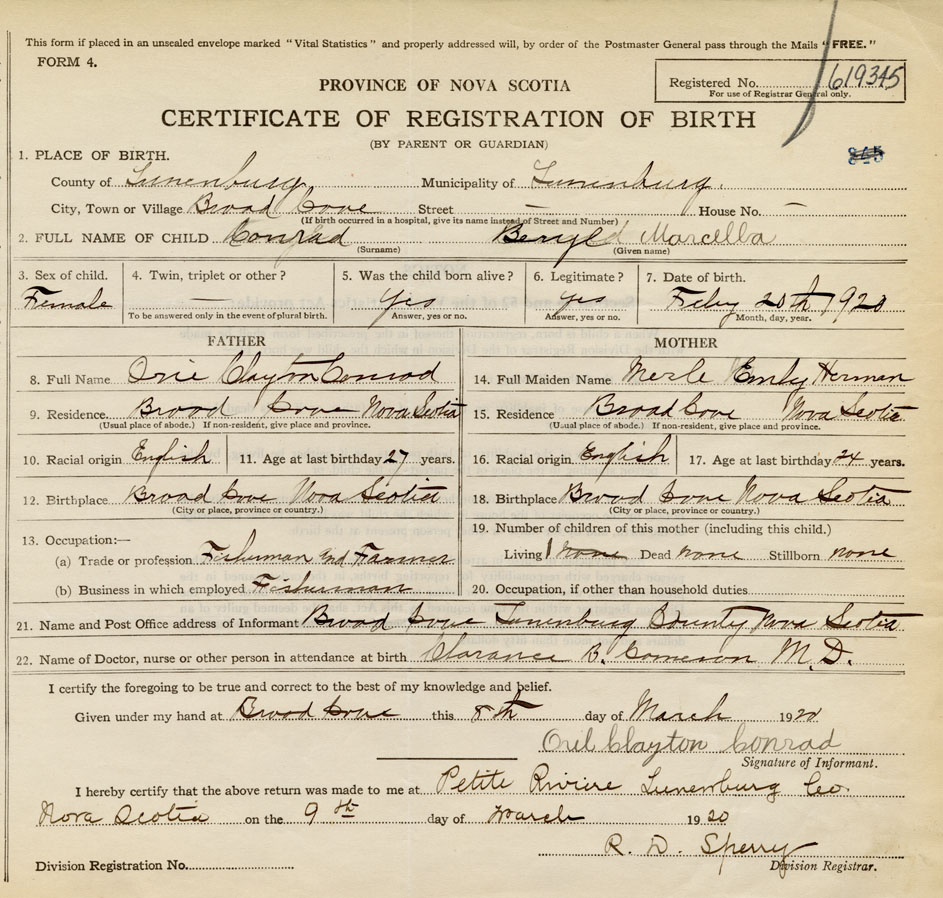 This form if placed in an unsealed envelope marked "Vital Statistics" and properly addressed will, by order of the Postmaster General pass through the Mails "FREE."
FORM 4.
Registered No. 619345
For use of Registrar General only.
PROVINCE OF NOVA SCOTIA
CERTIFICATE OF REGISTRATION OF BIRTH
(BY PARENT OR GUARDIAN)
845
1. PLACE OF BIRTH.
County of Lunenburg Municipality of Lunenburg.
City, Town or Village Broad Cove Street — House No. —
(If birth occurred in a hospital, give its name instead of Street and Number)
2. FULL NAME OF CHILD Conrad Beryl Marcella
(Surname) (Given name)
3. Sex of child. 4. Twin, triplet or other? 5. Was the child born alive? 6. Legitimate? 7. Date of birth.
Female — Yes Yes Feby 20th 1920
To be answered only in the event of plural birth. Answer, yes or no. Answer, yes or no. Month, day, year.
FATHER MOTHER
8. Full Name Orie Clayton Conrad 14. Full Maiden Name Merle Emily Herman
9. Residence. Broad Cove Nova Scotia 15. Residence Broad Cove Nova Scotia
(Usual place of abode.) If non-resident, give place and province. (Usual place of abode.) If non-resident, give place and province.
10. Racial origin English 11. Age at last birthday 27 years. 16. Racial origin English 17. Age at last birthday 24 years.
12. Birthplace Broad Cove Nova Scotia 18. Birthplace Broad Cove Nova Scotia
(City or place, province or country.) (City or place, province or country.)
19. Number of children of this mother (including this child.)
13. Occupation:—
(a) Trade or profession Fisherman and Farmer Living 1 none Dead none Stillborn none
(b) Business in which employed Fisherman 20. Occupation, if other than household duties
21. Name and Post Office address of Informant Broad Cove Lunenburg County Nova Scotia
22. Name of Doctor, nurse or other person in attendance at birth Clarance B. Cameron M.D.
I certify the foregoing to be true and correct to the best of my knowledge and belief.
Given under my hand at Broad Cove this 8th day of March 1920
Clayton Conrad
Signature of Informant.
I hereby certify that the above return was made to me at Petite Riviere Lunenburg Co.
Nova Scotia on the 9th day of March 1920
R. D. Sperry
Division Registration No. Division Registrar.